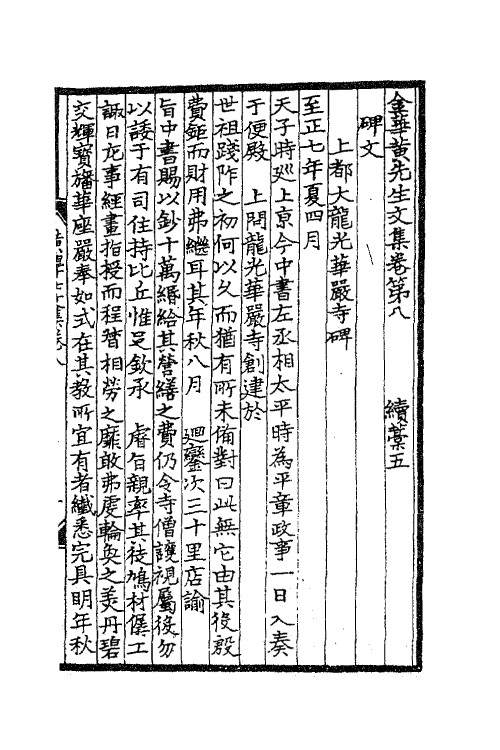 金華黃先生文集卷第八　續藁五
碑文
上都大龍光華嚴寺碑
至正七年夏四月
天子時廵上京今中書左丞相太平時為平章政事一日入奏
于便殿　上問龍光華嚴寺創建於
世祖踐阼之初何以久而猶有所未備對曰此無它由其役殷
費鉅而財用弗繼耳其年秋八月　迴鑾次三十里店諭
旨中書賜以鈔十萬緡給其營繕之費仍令寺僧護視屬役勿
以諉于有司住持比丘惟足欽承　睿旨親率其徒鳩材僝工
諏日庀事經畫指授而程督相勞之靡敢弗虔輪奐之美丹碧
交輝寶旛華座嚴奉如式在其教所宜有者纖悉完具明年秋